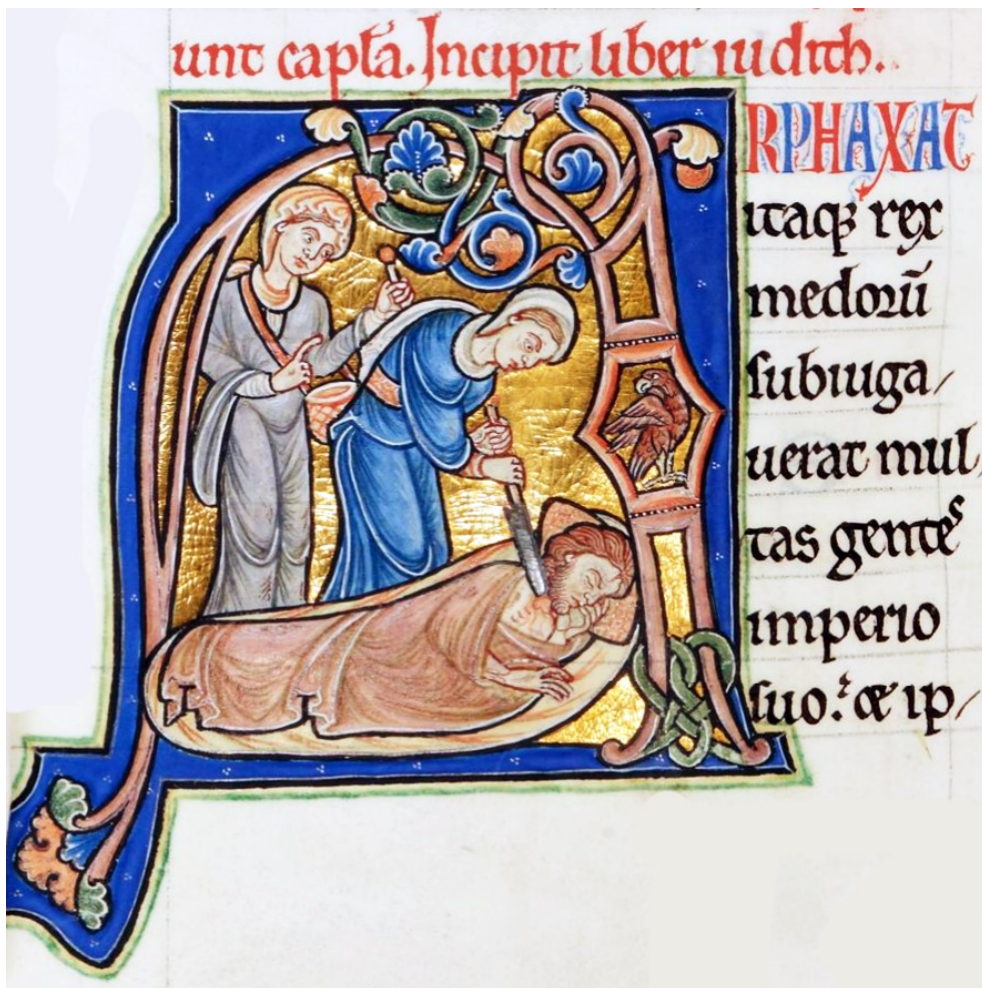 unt capl̃a. Incipit liber iudith.
ARPHAXAT
itaqꝫ rex
medoꝝũ
subiuga/
uerat mul,
tas gentes
imperio
suo. et ip/